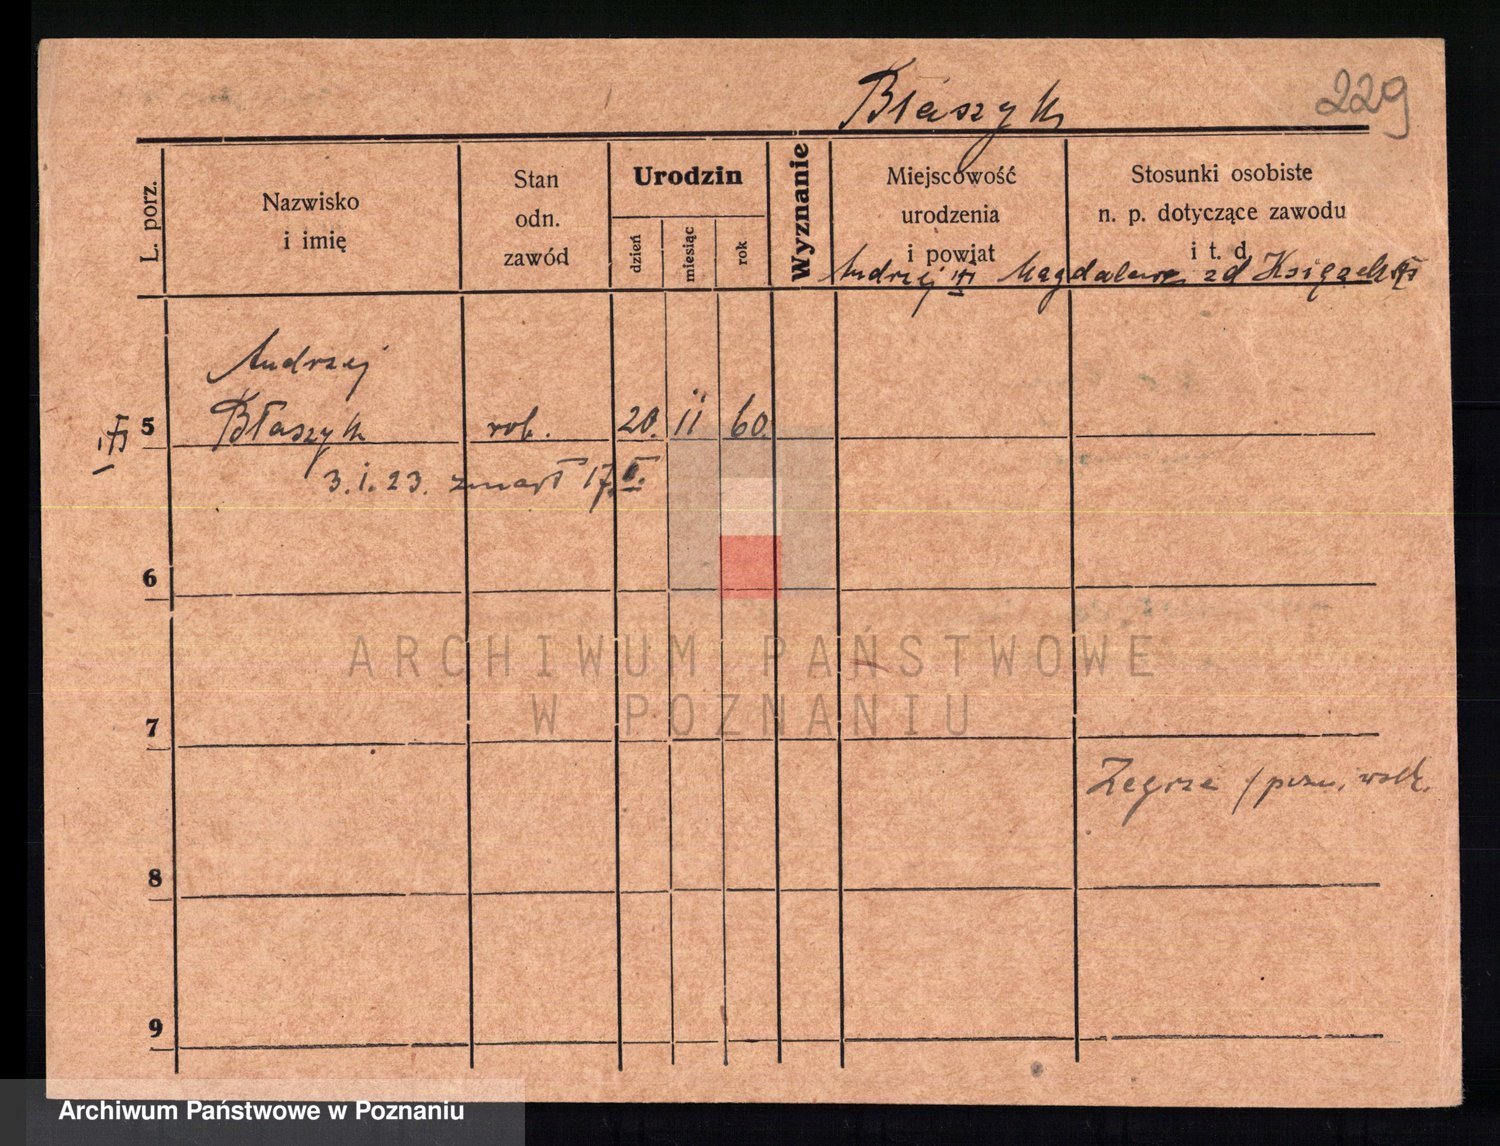 Błaszyk
229
L. porz.
Nazwisko
i imię
Stan
odn.
zawód
Urodzin
dzień
miesiąc
rok
Wyznanie
Miejscowość
urodzenia
i powiat
Stosunki osobiste
n. p. dotyczące zawodu
i t. d.
Andrzej Magdalena zd
Andrzej
5 Błaszyk rob. 20. II 60.
3.I.23. zmarł 17.
6
ARCHIWUM PAŃSTWOWE
W POZNANIU
7
Zegrze
8
9
Archiwum Państwowe w Poznaniu